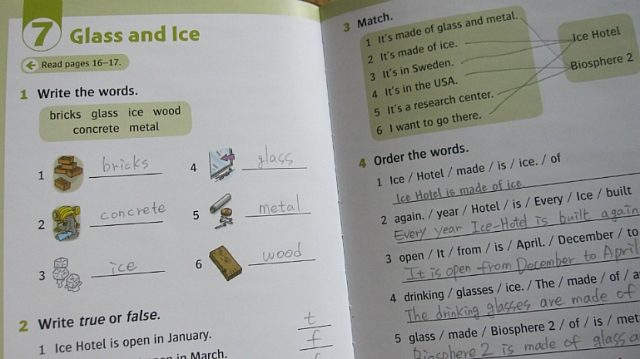 7 Glass and Ice
← Read pages 16–17.
1 Write the words.
bricks glass ice wood
concrete metal
1 bricks
2 concrete
3 ice
4 glass
5 metal
6 wood
2 Write true or false.
t
1 Ice Hotel is open in January. f
open in March.
3 Match.
1 It's made of glass and metal.
2 It's made of ice.
3 It's in Sweden.
4 It's in the USA.
5 It's a research center.
6 I want to go there.
Ice Hotel
Biosphere 2
4 Order the words.
1 Ice / Hotel / made / is / ice. / of
Ice Hotel is made of ice.
2 again. / year / Hotel / is / Every / Ice / built
Every year Ice-Hotel is built again
3 open / It / from / is / April. / December / to
It is open from December to April
4 drinking / glasses / ice. / The / made / of /
The drinking glasses are made of
5 glass / made / Biosphere 2 / of / is /
Biosphere 2 is made of glass